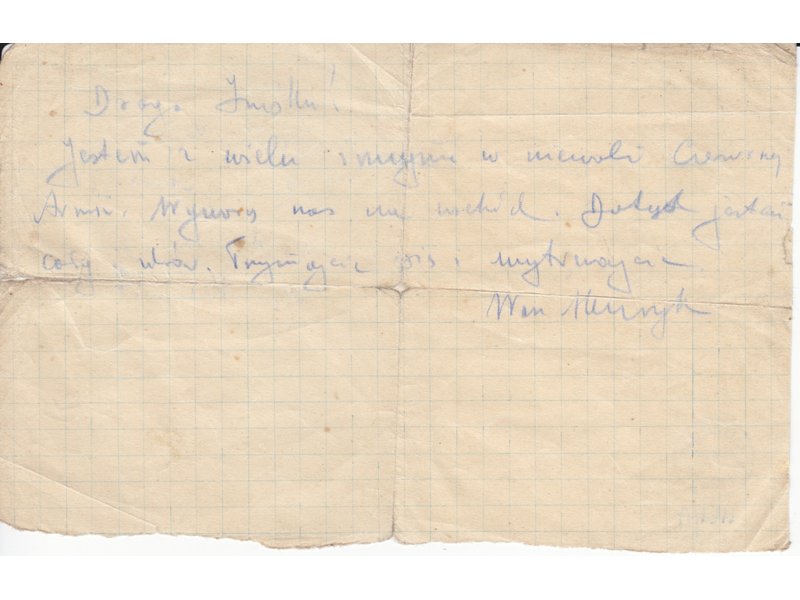 Drogo
Jestem z wielu innymi w niewoli Czerwonej
Armii. Wywożą nas na wschód. Dotąd jestem
cały i zdrów. Trzymajcie się i wytrwajcie
Wasz Henryk